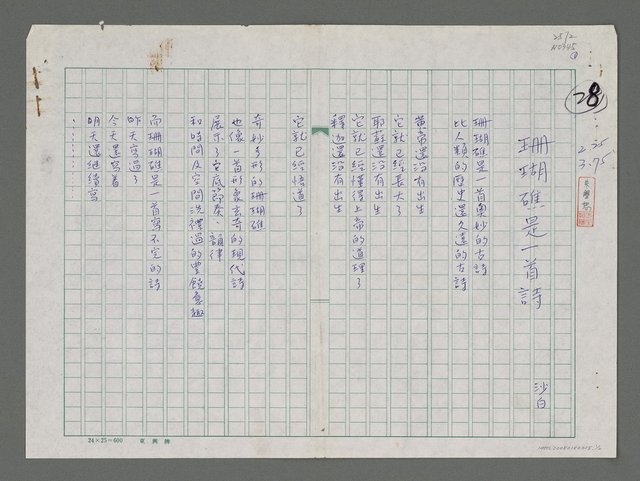 25/2
N0345
28
2.25
3.75
珊瑚礁是一首詩
沙白
珊瑚礁是一首奧妙的古詩
比人類的歷史還久遠的古詩
黃帝還沒有出生
它就已經長大了
耶蘇還沒有出生
它就已經懂得上帝的道理了
釋迦還沒有出生
它就已經悟道了
奇妙多形的珊瑚礁
也像一首形象玄奇的現代詩
展示了它底節奏、韻律
和時間及空間洗禮過的豐饒意趣
而珊瑚礁是一首寫不完的詩
昨天寫過了
今天還寫着
明天還繼續寫
……
24×25=600